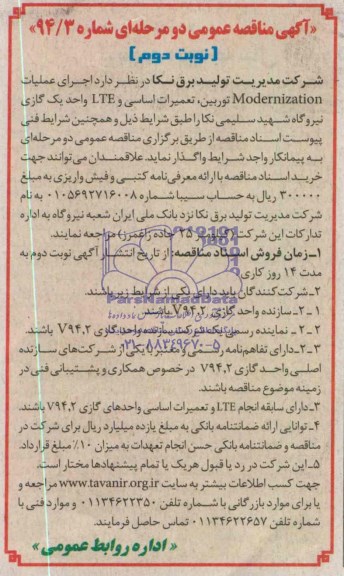 «آگهی مناقصه عمومی دو مرحله‌ای شماره ۹۴/۳»
[نوبت دوم]
شرکت مدیریت تولید برق نکا در نظر دارد اجرای عملیات
Modernization توربین، تعمیرات اساسی و LTE واحد یک گازی
نیروگاه شهید سلیمی نکا را طبق شرایط ذیل و همچنین شرایط فنی
پیوست اسناد مناقصه از طریق برگزاری مناقصه عمومی دو مرحله‌ای
به پیمانکار واجد شرایط واگذار نماید. علاقمندان می‌توانند جهت
خرید اسناد مناقصه با ارائه معرفی‌نامه کتبی و فیش واریزی به مبلغ
۳۰۰۰۰۰ ریال به حساب سیبا شماره ۰۱۰۵۶۹۲۷۱۶۰۰۸ به نام
شرکت مدیریت تولید برق نکا نزد بانک ملی ایران شعبه نیروگاه به اداره
تدارکات این شرکت (کیلومتر ۲۵ جاده زاغمرز) مراجعه نمایند.
۱ـ زمان فروش اسناد مناقصه: از تاریخ انتشار آگهی نوبت دوم به
مدت ۱۴ روز کاری
۲ـ شرکت‌کنندگان باید دارای یکی از شرایط زیر باشند.
۱ـ۲ـ سازنده واحد گازی V۹۴.۲ باشند.
۲ـ۲ـ نماینده رسمی یک شرکت سازنده واحد گازی V۹۴.۲ باشند.
۳ـ۲ـ دارای تفاهم‌نامه رسمی و معتبر با یکی از شرکت‌های سازنده
اصلی واحد گازی V۹۴.۲ در خصوص همکاری و پشتیبانی فنی در
زمینه موضوع مناقصه باشند.
۳ـ دارای سابقه انجام LTE و تعمیرات اساسی واحدهای گازی V۹۴.۲ باشند.
۴ـ توانایی ارائه ضمانتنامه بانکی به مبلغ یازده میلیارد ریال برای شرکت در
مناقصه و ضمانتنامه بانکی حسن انجام تعهدات به میزان ۱۰٪ مبلغ قرارداد.
۵ـ این شرکت در رد یا قبول هریک یا تمام پیشنهادها مختار است.
جهت کسب اطلاعات بیشتر به سایت www.tavanir.org.ir مراجعه و
یا برای موارد بازرگانی با شماره تلفن ۰۱۱۳۴۶۲۲۳۵۰ و موارد فنی با
شماره تلفن ۰۱۱۳۴۶۲۲۶۵۷ تماس حاصل فرمایند.
«اداره روابط عمومی»
ParsNamadData
۰۲۱-۸۸۳۴۹۶۷۰-۵